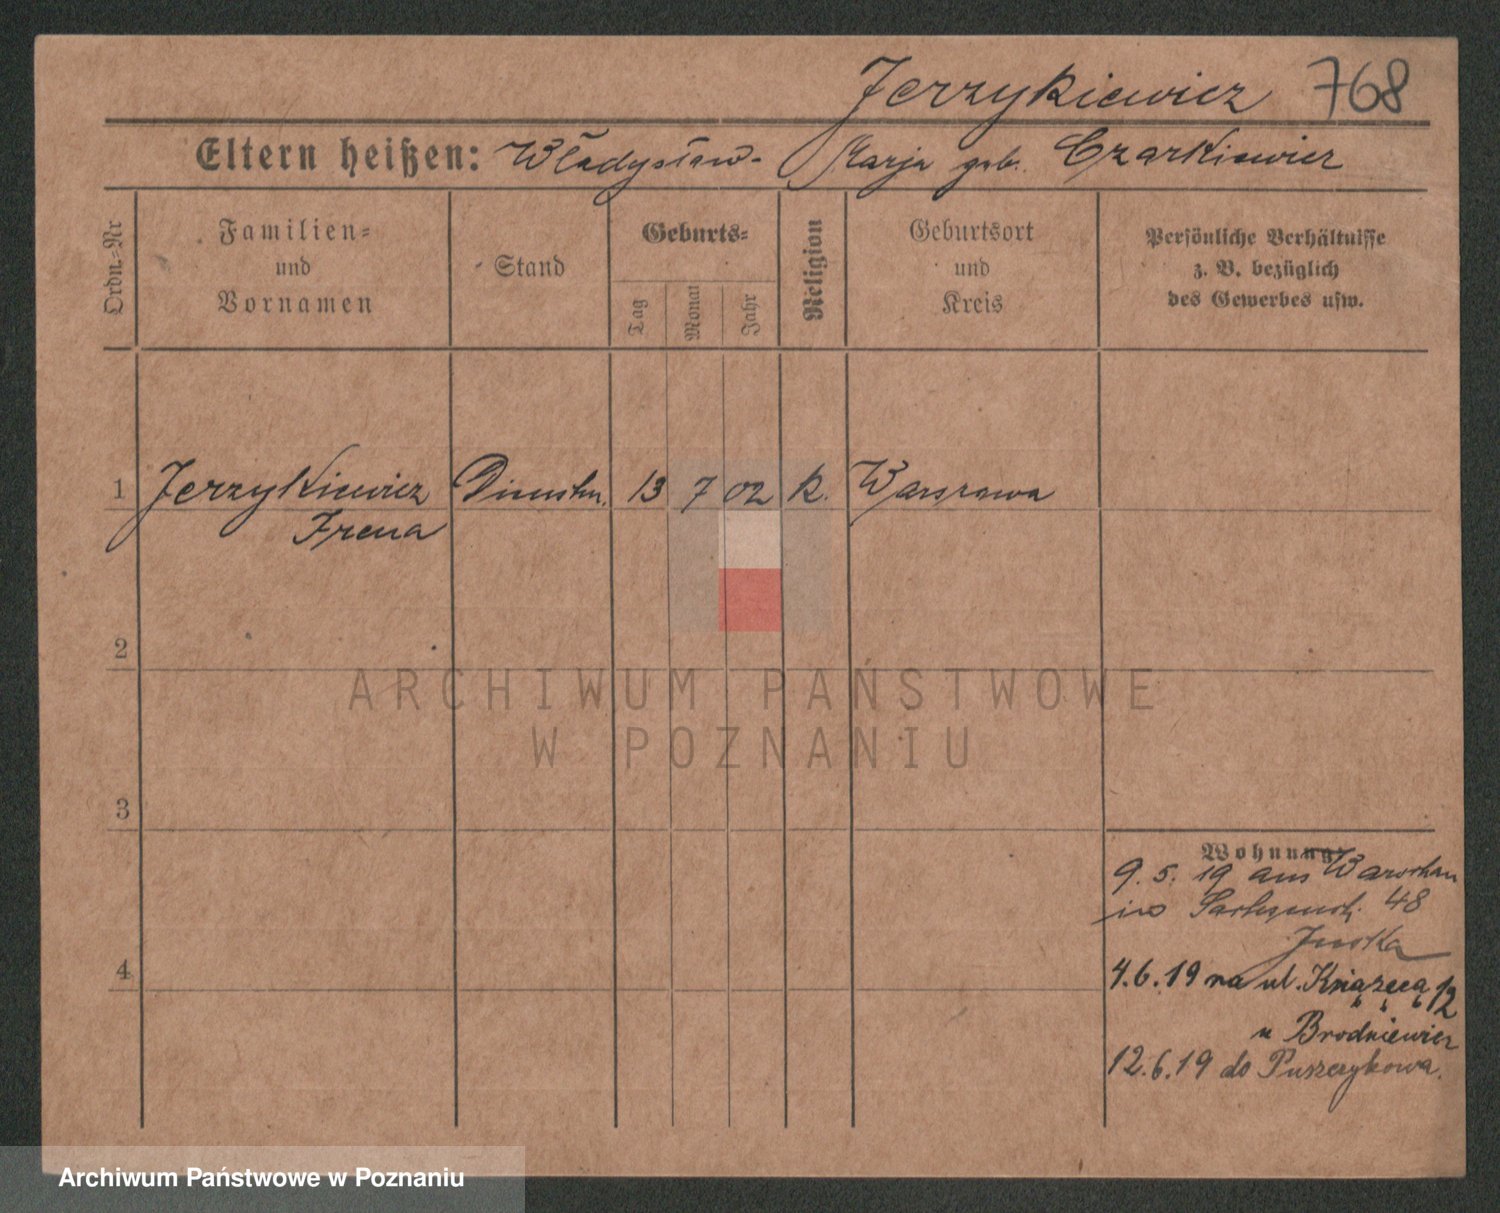 Jerzykiewicz 768
Eltern heißen: Władysław - Marja geb. Czarkiewicz
Ordn.-Nr
Familien-
und
Vornamen
Stand
Geburts-
Tag
Monat
Jahr
Religion
Geburtsort
und
Kreis
Persönliche Verhältnisse
z. B. bezüglich
des Gewerbes usw.
1 Jerzykiewicz 13 7 02 K. Warszawa
Irena
2
ARCHIWUM PAŃSTWOWE
W POZNANIU
3
Wohnung:
9. 5. 19 aus Warschau
48
4
4.6.19 na ul. Książęcą 12
u Brodniewicz
12.6.19 do Puszczykowa.
Archiwum Państwowe w Poznaniu